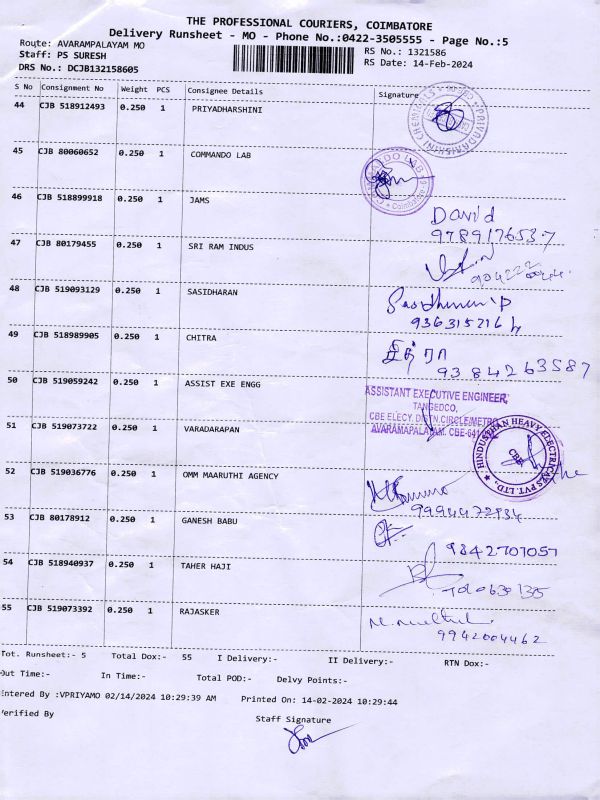 THE PROFESSIONAL COURIERS, COIMBATORE
Delivery Runsheet - MO - Phone No.:0422-3505555 - Page No.:5
Route: AVARAMPALAYAM MO
RS No.: 1321586
Staff: PS SURESH
RS Date: 14-Feb-2024
DRS No.: DCJB132158605
S No Consignment No Weight PCS Consignee Details Signature
44 CJB 518912493 0.250 1 PRIYADHARSHINI
45 CJB 80060652 0.250 1 COMMANDO LAB
46 CJB 518899918 0.250 1 JAMS
David
9789176537
47 CJB 80179455 0.250 1 SRI RAM INDUS
48 CJB 519093129 0.250 1 SASIDHARAN
9363157164
49 CJB 518989905 0.250 1 CHITRA
சித்ரா
9384263587
50 CJB 519059242 0.250 1 ASSIST EXE ENGG
ASSISTANT EXECUTIVE ENGINEER,
TANGEDCO,
CBE ELECY. DISTN.CIRCLE/METRO
AVARAMAPALAYAM, CBE-641
51 CJB 519073722 0.250 1 VARADARAPAN
HINDUSTHAN HEAVY ELECTRICALS PVT. LTD.,
CBE
52 CJB 519036776 0.250 1 OMM MAARUTHI AGENCY
9994472934
53 CJB 80178912 0.250 1 GANESH BABU
9842707057
54 CJB 518940937 0.250 1 TAHER HAJI
55 CJB 519073392 0.250 1 RAJASKER
9942004462
Tot. Runsheet:- 5 Total Dox:- 55 I Delivery:- II Delivery:- RTN Dox:-
Out Time:- In Time:- Total POD:- Delvy Points:-
Entered By :VPRIYAMO 02/14/2024 10:29:39 AM Printed On: 14-02-2024 10:29:44
Verified By
Staff Signature